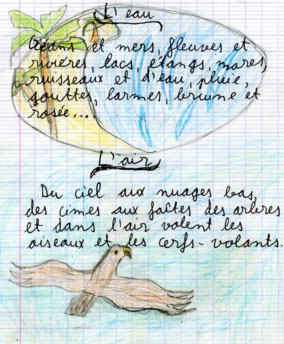 L'eau
Océans et mers, fleuves et
rivières, lacs, étangs, mares,
ruisseaux et d'eau, pluie,
gouttes, larmes, bruine et
rosée....
L'air
Du ciel aux nuages bas,
des cimes aux faîtes des arbres
et dans l'air volent les
oiseaux et les cerfs-volants.